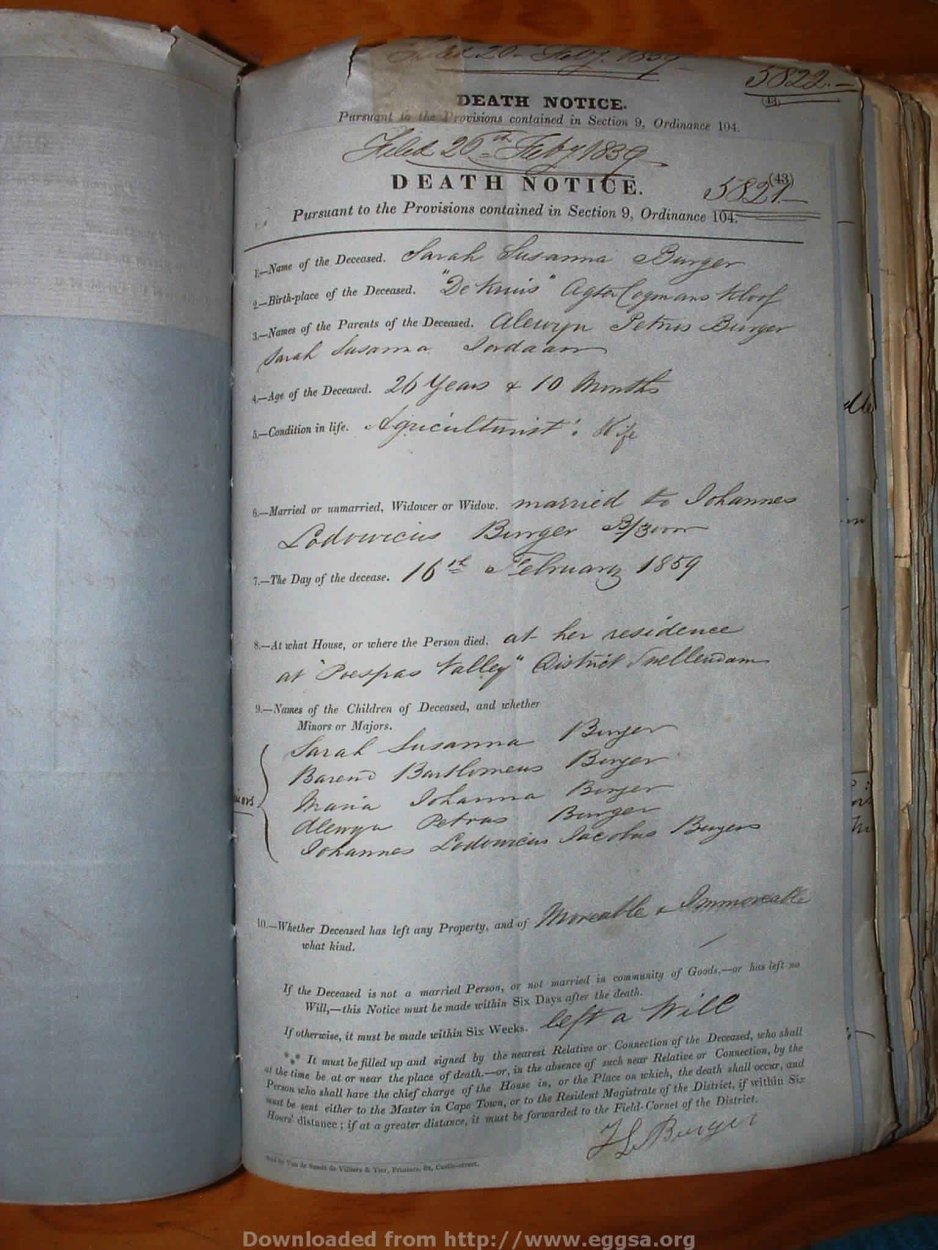 Filed 20 Feby. 1859
5822.-
(43)
DEATH NOTICE.
Pursuant to the Provisions contained in Section 9, Ordinance 104.
Filed 26th Feby 1859
(43)
DEATH NOTICE.
5821-
Pursuant to the Provisions contained in Section 9, Ordinance 104.
1.—Name of the Deceased. Sarah Susanna Burger
2.—Birth-place of the Deceased. "De Kruis" Agter Cogmans Kloof
3.—Names of the Parents of the Deceased. Alewyn Petrus Burger
Sarah Susanna Jordaan
4.—Age of the Deceased. 26 Years & 10 Months
5.—Condition in life. Agriculturist's Wife
6.—Married or unmarried, Widower or Widow. married to Johannes
Lodowicus Burger B/zoon
7.—The Day of the decease. 16th February 1859
8.—At what House, or where the Person died. at her residence
at "Poespas Valley" District Swellendam
9.—Names of the Children of Deceased, and whether
Minors or Majors.
Sarah Susanna Burger
Barend Bartlomeus Burger
Maria Johanna Burger
Alewyn Petrus Burger
Johannes Lodowicus Jacobus Burger
10.—Whether Deceased has left any Property, and of what kind. Moveable & Immoveable
If the Deceased is not a married Person, or not married in community of Goods,—or has left no
Will,—this Notice must be made within Six Days after the death.
If otherwise, it must be made within Six Weeks. left a Will
It must be filled up and signed by the nearest Relative or Connection of the Deceased, who shall
at the time be at or near the place of death.—or, in the absence of such near Relative or Connection, by the
Person who shall have the chief charge of the House in, or the Place on which, the death shall occur, and
must be sent either to the Master in Cape Town, or to the Resident Magistrate of the District, if within Six
Hours' distance; if at a greater distance, it must be forwarded to the Field-Cornet of the District.
J L Burger
Sold by Van de Sandt de Villiers & Tier, Printers, Castle-street.
Downloaded from http://www.eggsa.org